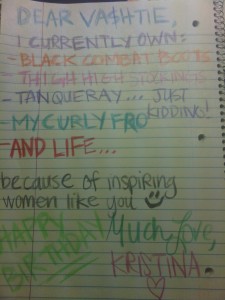 DEAR VA$HTIE,
I CURRENTLY OWN:
- BLACK COMBAT BOOTS
- THIGH HIGH STOCKINGS
- TANQUERAY... JUST
KIDDING!
- MY CURLY FRO
AND LIFE...
because of inspiring
women like you
HAPPY
BIRTHDAY!
Much love,
KRISTINA